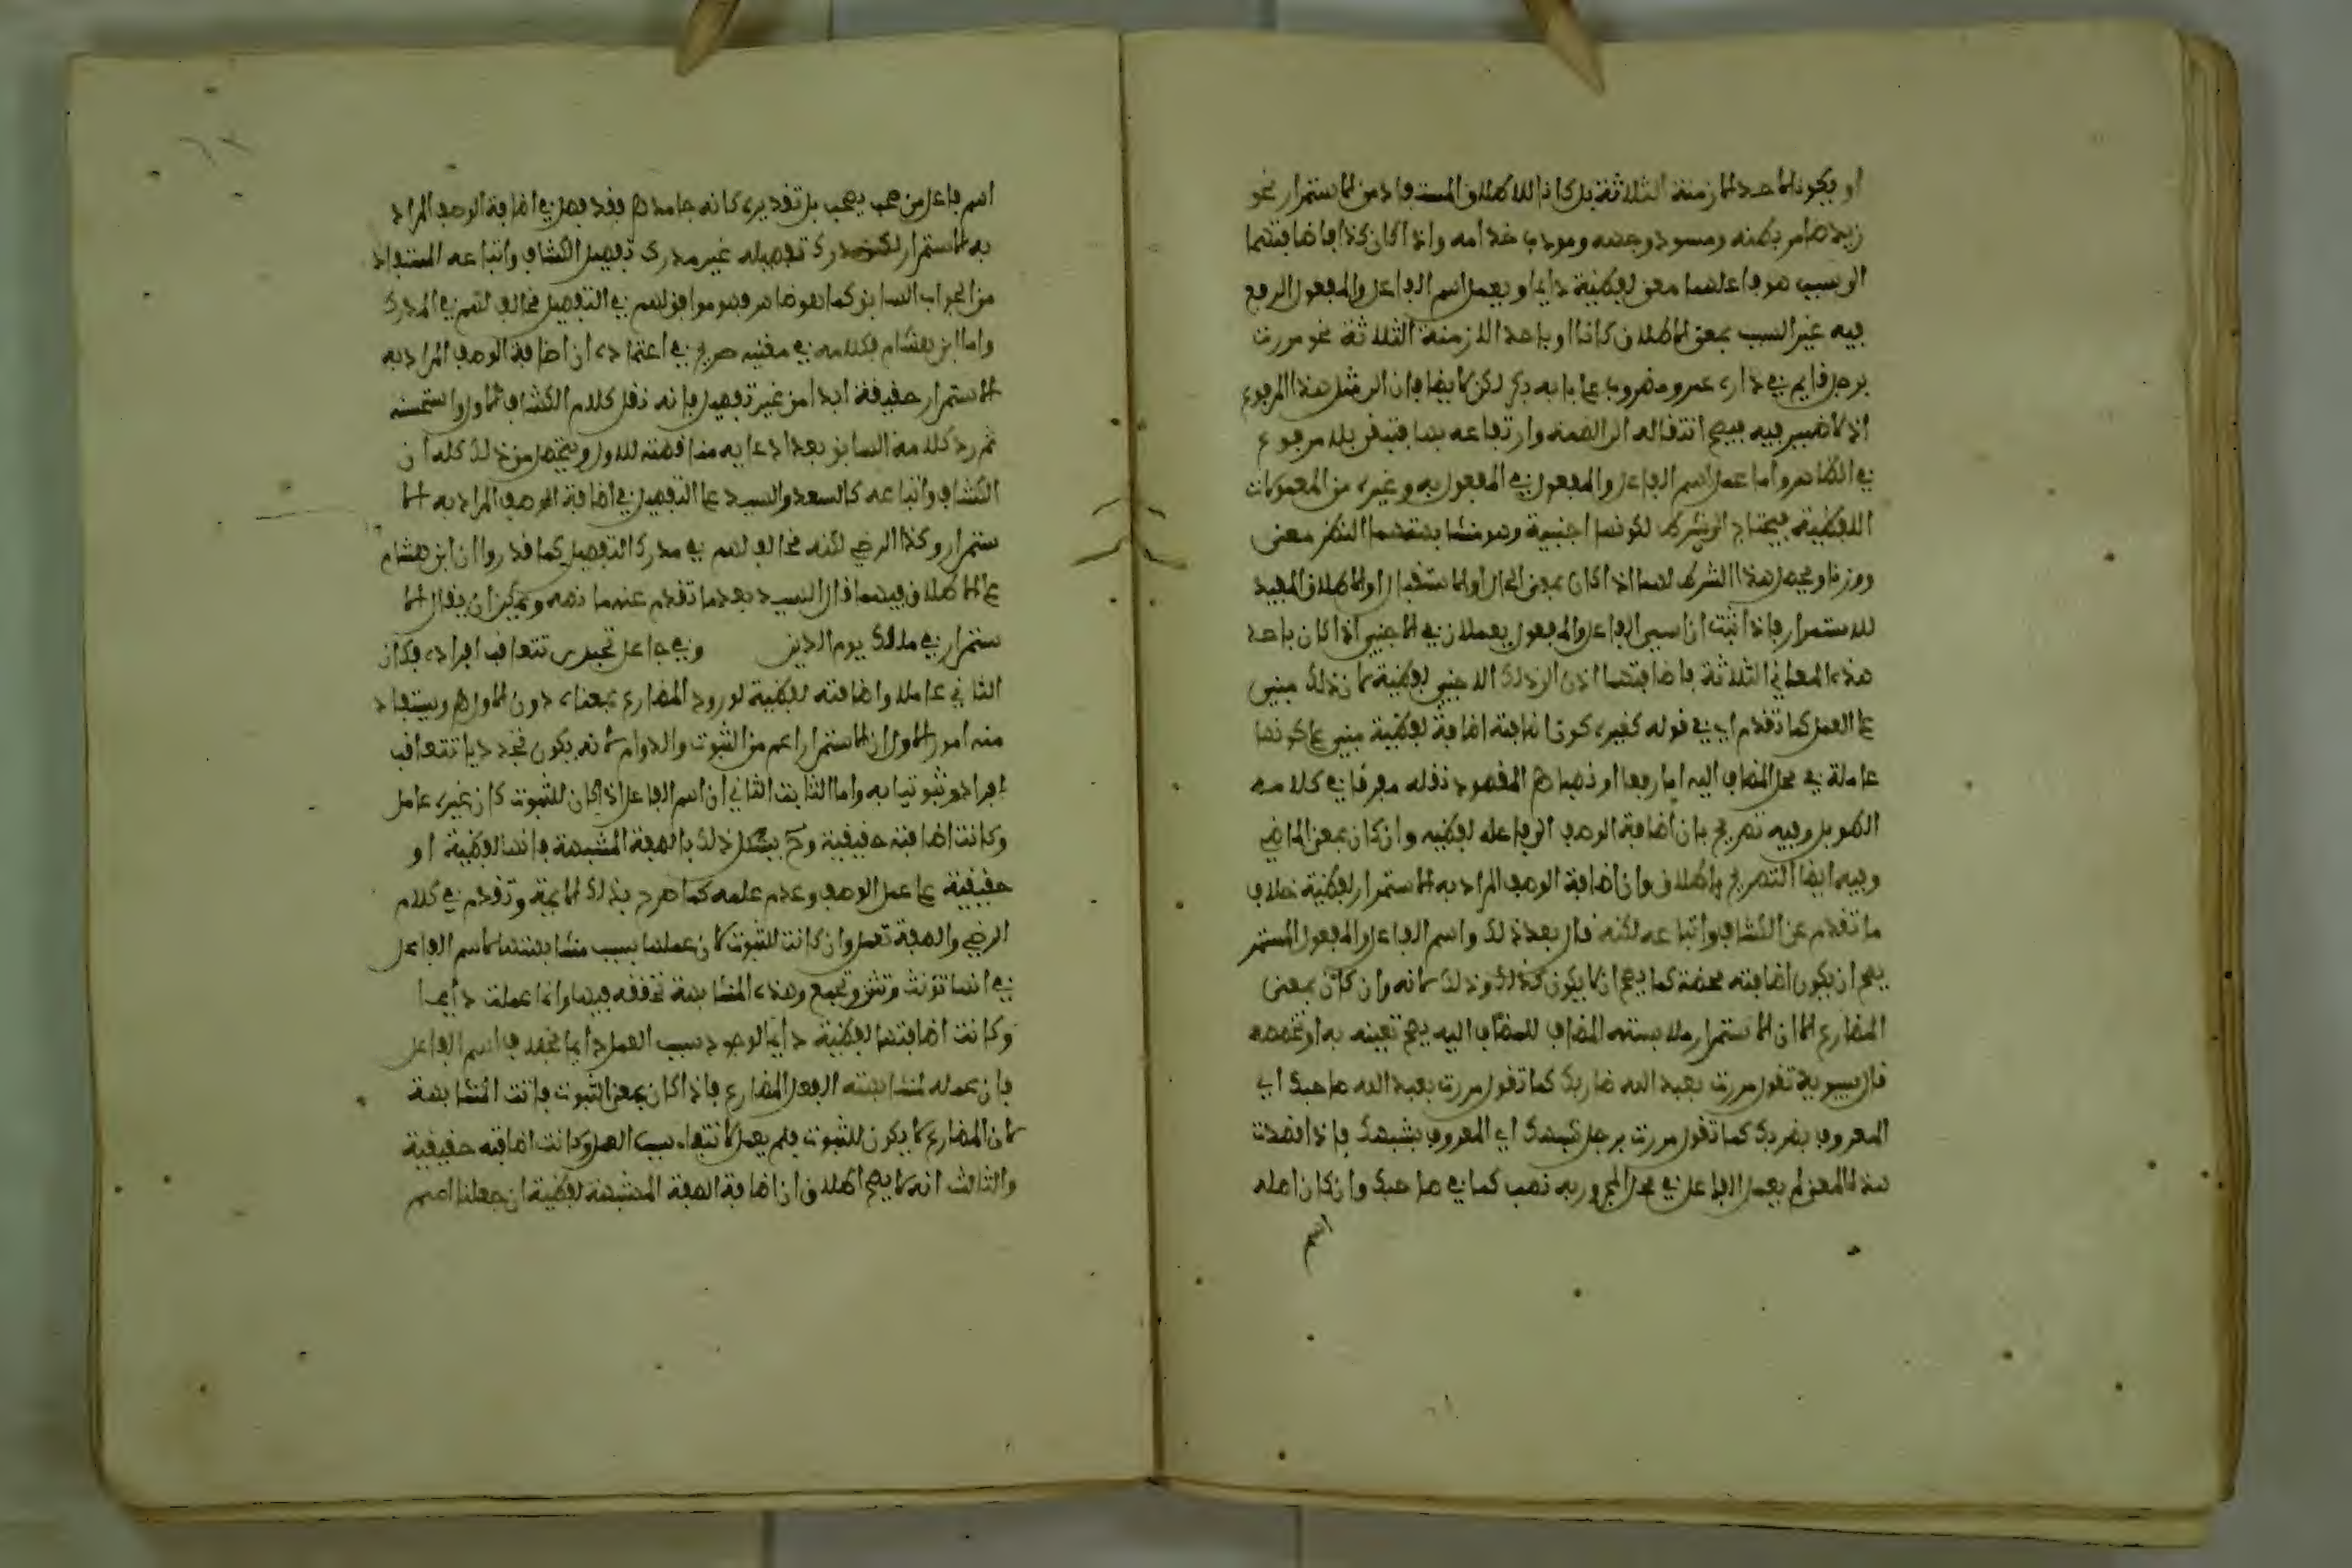 او يكونا لاحد الازمنة الثلاثة بل كانا للاطلاق المستفاد من الاستمرار نحو
زيد ضامر بطنه ومسود وجهه ومودب خدامه واذا كان كذا فاضافتهما
الى سبب هو فاعلهما معنى لفظية دايما ويعمل اسم الفاعل والمفعول الرفع
فيه غير السبب بمعنى الاطلاق كانا او باحد الازمنة الثلاثة نحو مررت
برجل قايم في داره عمرو ومضروب على بابه بكر لكن لا يضافان الى مثل هذا المرفوع
اذ لا ضمير فيه يصح انتقاله الى الصفة وارتفاعه بها فتبقى بلا مرفوع
في الظاهر واما عمل اسم الفاعل والمفعول في المفعول به وغيره من المعمولات
اللفظية فيحتاج الى شرط لكونها اجنبية وهو مشابهتهما الفعل معنى
ووزنا ويحصل هذا الشرط لهما اذا كان بمعنى الحال او الاستقبال او الاطلاق المفيد
للاستمرار فاذا ثبت ان اسمي الفاعل والمفعول يعملان في الاجنبي اذا كان باحد
هذه المعاني الثلاثة فاضافتهما اذن الى ذلك الاجنبي لفظية لان ذلك مبني
على العمل كما تقدم اي في قوله كغيره كون اضافته اضافة لفظية مبني على كونها
عاملة في محل المضاف اليه اما رفعا او نصبا هـ المقصود نقله مفرقا في كلامه
الطويل وفيه تصريح بان اضافة الوصف الى فاعله لفظيه وان كان بمعنى الماضي
وفيه ايضا التصريح باطلاق وان اضافة الوصف المراد به الاستمرار لفظية خلاف
ما تقدم عن الكشاف واتباعه لكنه قال بعد ذلك واسم الفاعل والمفعول المستمر
يصح ان يكون اضافته محضة كما يصح ان لا يكون كذلك وذلك لانه وان كان بمعنى
المضارع الا ان الاستمرار ملابسته المضاف للمضاف اليه يصح تعينه به او تخصصه
قال سيبوية تقول مررت بعبد الله ضاربك كما تقول مررت بعبد الله صاحبك اي
المعروف بضربك كما تقول مررت برجل شبهك اي المعروف بشبهك فاذا قصدت
هذا المعنى لم يعمل الفاعل في محل المجرور به نصب كما في صاحبك وان كان اصله
اسم
اسم فاعل من صحب يصحب بل تقديره كانه جامد هـ فقد فصل في اضافة الوصف المراد
به الاستمرار لكن مدرك تفصيله غير مدرك تفصيل الكشاف واتباعه المستفاد
من الجواب السابق كما هو ظاهر فهو موافق لهم في التفصيل مخالف لهم في المدرك
واما ابن هشام فكلامه في مغنيه صريح في اعتماده ان اضافة الوصف المراد به
الاستمرار حقيقة ابدا من غير تفصيل فانه نقل كلام الكشاف الاول واستحسنه
ثم رد كلامه السابق بعد ادعايه مناقضته للاول ويتحصل من ذلك كله ان
الكشاف واتباعه كالسعد والسيد على التفصيل في اضافة الوصف المراد به الا
ستمرار وكذا الرضي لكنه مخالف لهم في مدرك التفصيل كما قدروا ان ابن هشام
على الاطلاق فيهما قال السيد بعد ما تقدم عنه ما نصه ويمكن ان يقال الا
ستمرار في ملك يوم الدين وفي جاعل تجددي تتعاقب افراده فكان
الثاني عاملا واضافته لفظية لورود المضارع بمعناه دون الاول هـ ويستفاد
منه امور الاول ان الاستمرار اعم من الثبوت والدوام لانه يكون تجدديا تتعاقب
افراده وثبوتيا به واما الثابت الثاني ان اسم الفاعل اذا كان للثبوت كان غير عامل
وكانت اضافته حقيقية وح يشكل ذلك بالصفة المشبهة فانها لفظية او
حقيقية على عمل الوصف وعدم عمله كما صرح بذلك الايمة وتقدم في كلام
الرضي والصفة تعمل وان كانت للثبوت لان عملها بسبب مشابهتها لاسم الفاعل
في انها تؤنث وتثنى وتجمع وهذه المشابهة محققه فيها وانما عملت دايما
وكانت اضافتها لفظية دايما لوجود سبب العمل دايما بخلاف اسم الفاعل
فان عمله لمشابهته الفعل المضارع فاذا كان بمعنى الثبوت فاتت المشابهة
لان المضارع لا يكون للثبوت فلم يعمل لانتفاء سبب العمل وكانت اضافته حقيقية
والثالث انه لا يصح اطلاق ان اضافة الصفة المشبهة لفظية ان جعلنا اسم